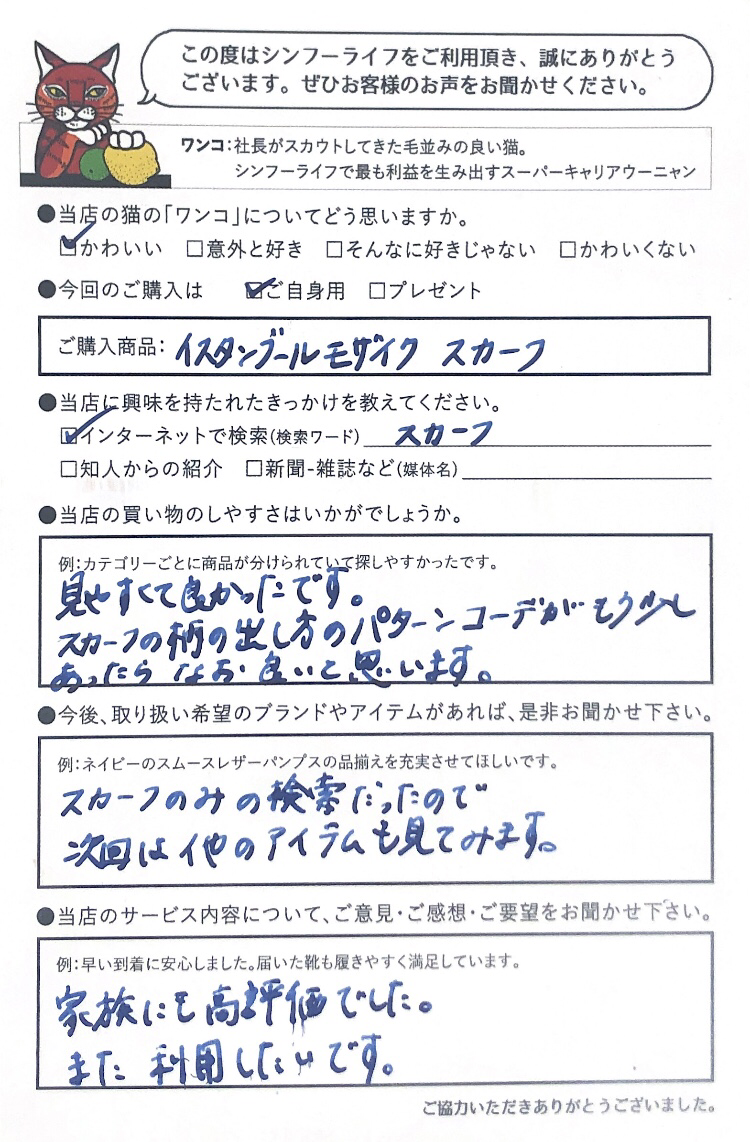 この度はシンフーライフをご利用頂き、誠にありがとう
ございます。ぜひお客様のお声をお聞かせください。
ワンコ：社長がスカウトしてきた毛並みの良い猫。
シンフーライフで最も利益を生み出すスーパーキャリアウーニャン
●当店の猫の「ワンコ」についてどう思いますか。
☑かわいい □意外と好き □そんなに好きじゃない □かわいくない
●今回のご購入は ☑ご自身用 □プレゼント
ご購入商品： イスタンブールモザイク スカーフ
●当店に興味を持たれたきっかけを教えてください。
☑インターネットで検索(検索ワード) スカーフ
□知人からの紹介 □新聞-雑誌など(媒体名)
●当店の買い物のしやすさはいかがでしょうか。
例：カテゴリーごとに商品が分けられていて探しやすかったです。
見やすくて良かったです。
スカーフの柄の出し方のパターンコーデがもう少し
あったらなお良いと思います。
●今後、取り扱い希望のブランドやアイテムがあれば、是非お聞かせ下さい。
例：ネイビーのスムースレザーパンプスの品揃えを充実させてほしいです。
スカーフのみの検索だったので
次回は他のアイテムも見てみます。
●当店のサービス内容について、ご意見・ご感想・ご要望をお聞かせ下さい。
例：早い到着に安心しました。届いた靴も履きやすく満足しています。
家族にも高評価でした。
また利用したいです。
ご協力いただきありがとうございました。